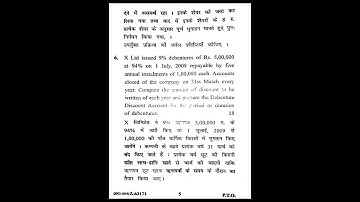 देने में असमर्थ रहा । इसके शेयर को जब्त कर
लिया गया तथा बाद में इसके शेयरों के 8 रु.
प्रत्येक शेयर के अनुसार पूर्ण भुगतान मानते हुए पुनः
निर्गमन किया गया ।
उपर्युक्त प्रक्रिया की जर्नल प्रविष्टियाँ कीजिए ।
6. X Ltd issued 9% debentures of Rs. 5,00,000
at 94% on 1 July, 2009 repayable by five
annual instalments of 1,00,000 each. Accounts
closed of the company on 31st March every
year. Compute the amount of discount to be
written of each year and prepare the Debenture
Discount Account for the period or duration
of debentures. 15
X लिमिटेड ने 9% ऋणपत्र 5,00,000 रु. के
94% में जारी किए जो 1 जुलाई, 2009 से
1,00,000 की पाँच वार्षिक किश्तों में भुगतान किए
जाएँगे । कम्पनी के खाते प्रत्येक वर्ष 31 मार्च को
बंद किए जाते हैं । प्रत्येक वर्ष छूट की कितनी
राशि लाभ-हानि खाते से चार्ज की जाएगी ताकि
ऋणपत्र छूट खाता ऋणपत्रों के समय के दौरान का
तैयार किया जाए ।
5 P.T.O.